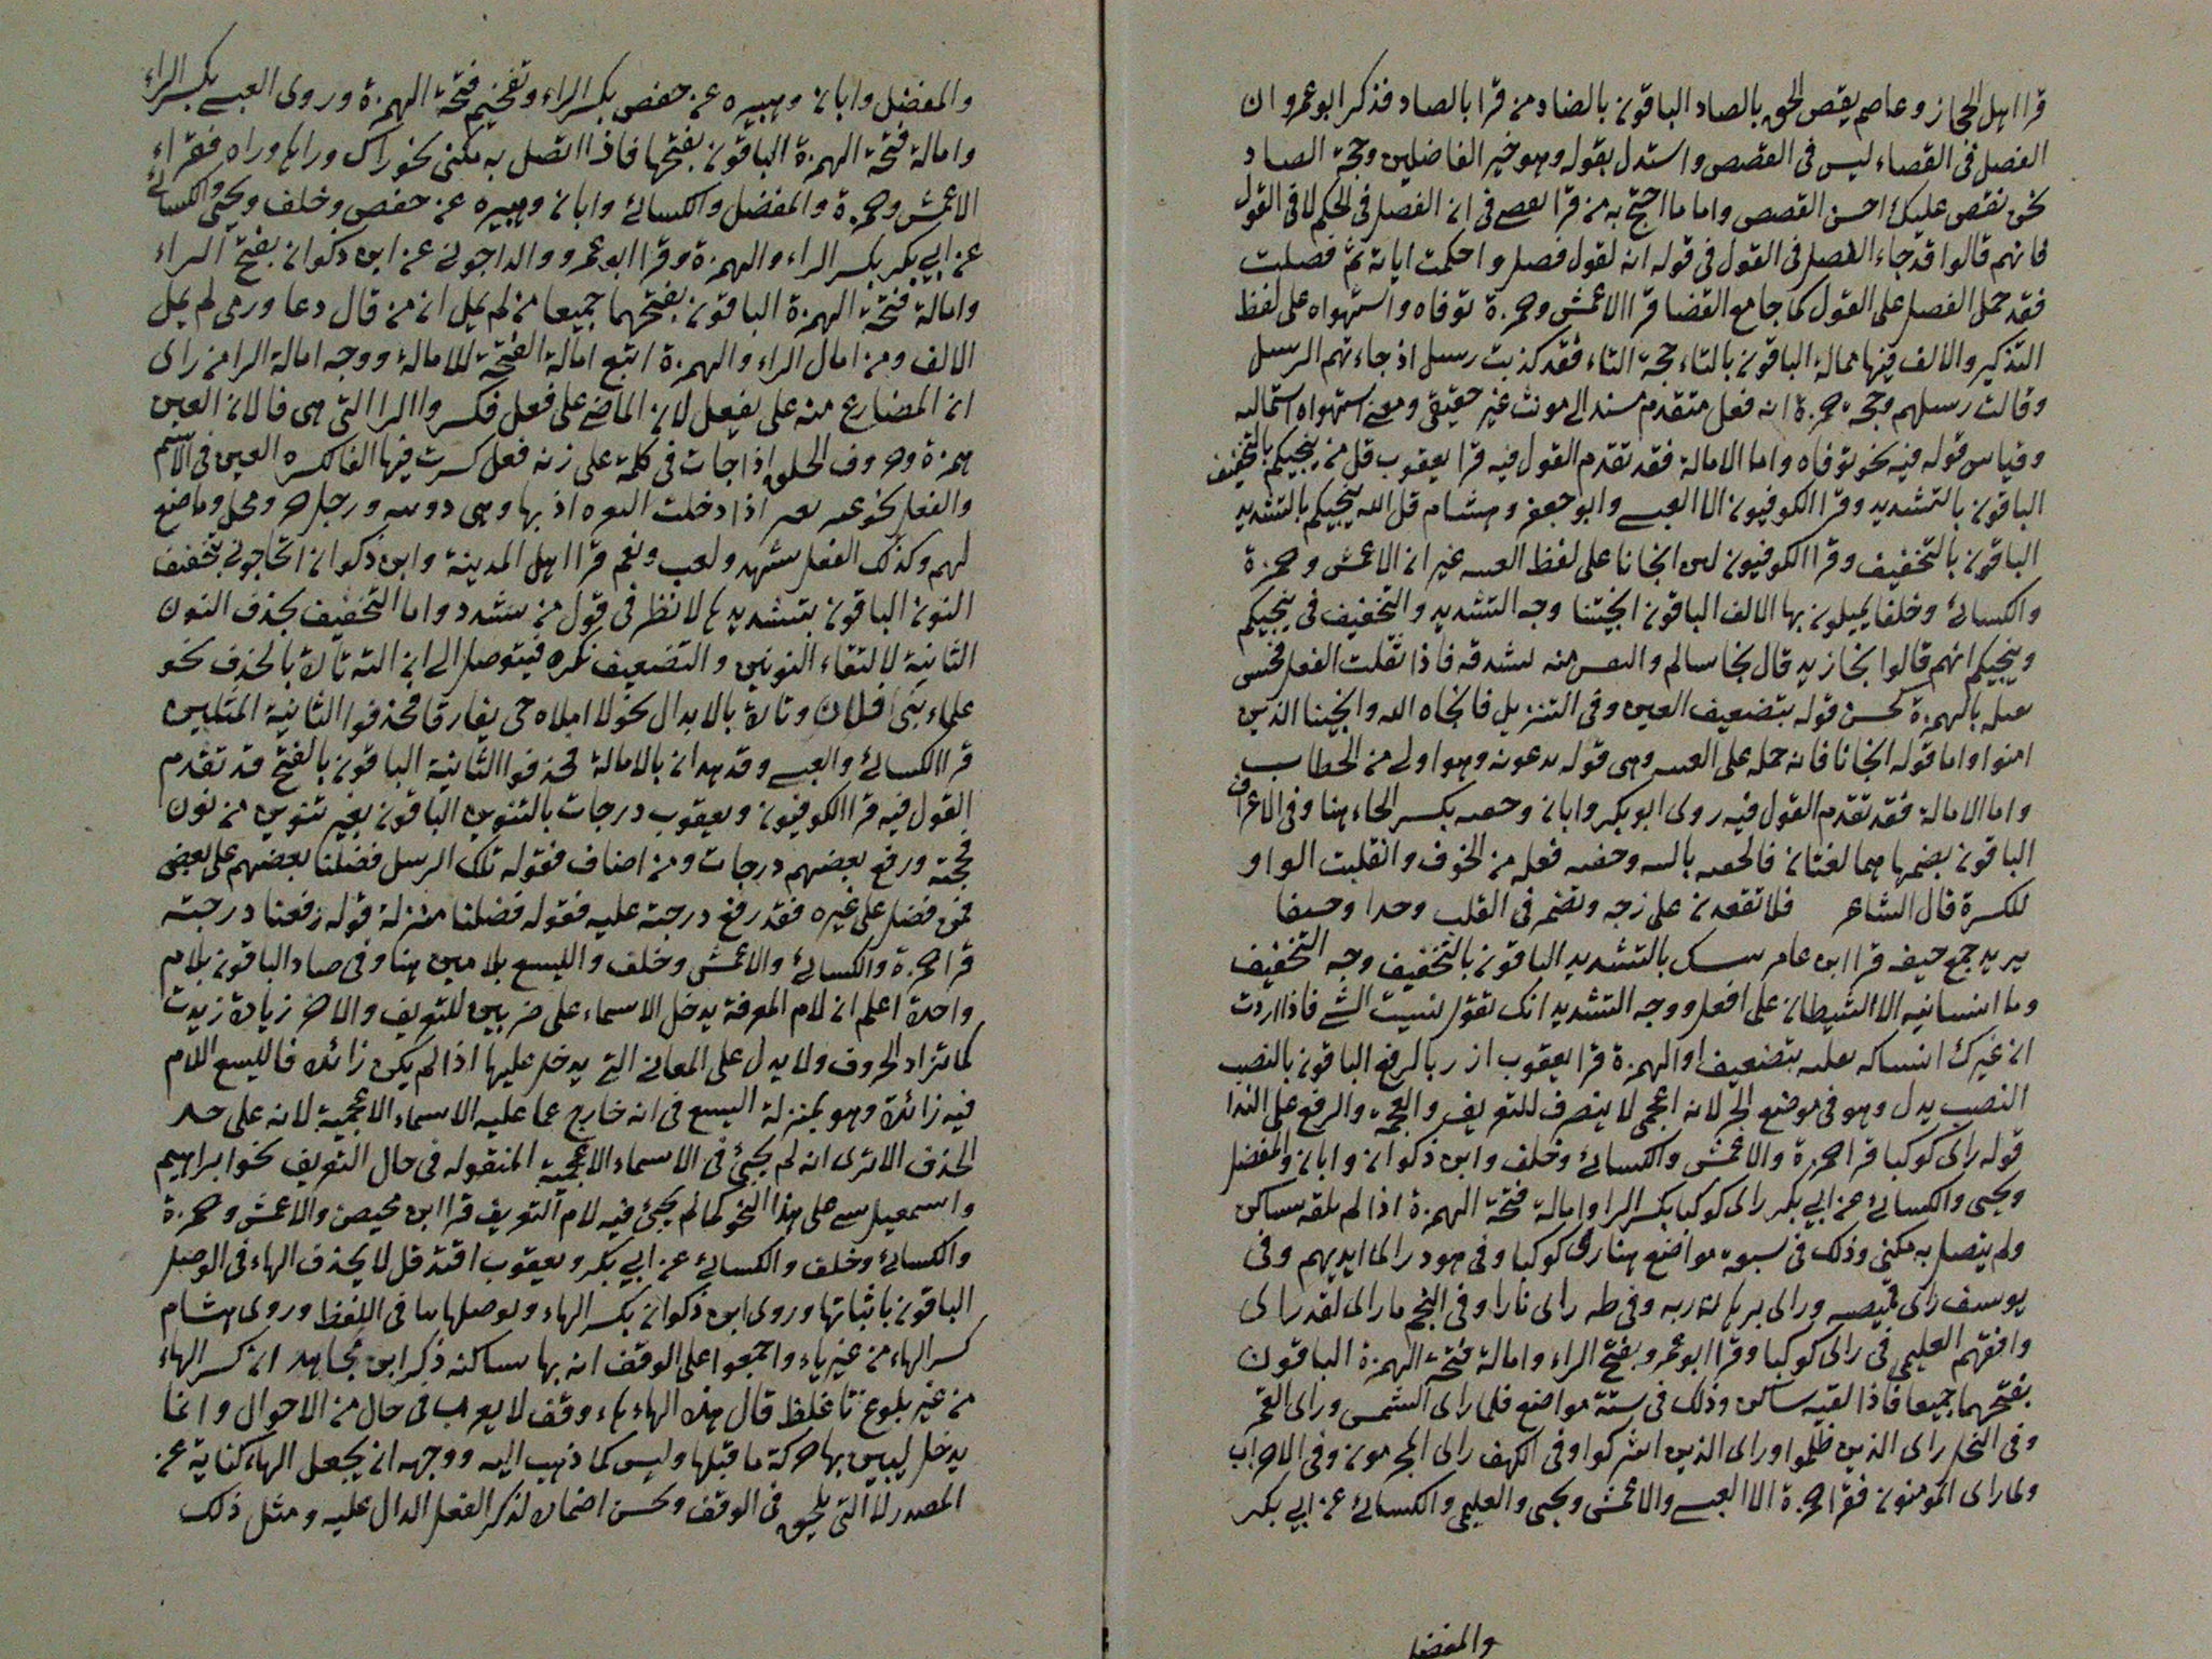 قرا اهل الحجاز وعاصم يقص الحق بالصاد الباقون بالضاد من قرا بالصاد فذكر ابو عمرو ان
الفصل فى القضاء ليس فى القصص واستدل بقوله وهو خير الفاضلين وحجة الصاد
نحن نقص عليك احسن القصص واما ما احتج به من قرا فى ان الفصل فى الحكم لا فى القول
فانهم قالوا قد جاء الفصل فى القول فى قوله انه لقول فصل واحكمت اياته ثم فصلت
فقد حمل الفصل على القول كما جا مع القضا قرا الاعمش وحمزة توفاه واستهواه على لفظ
التذكير والالف فيها ممالة الباقون بالتاء حجة التاء فقد كذبت رسل اذ جاءتهم الرسل
وقالت رسلهم وحجة حمزة انه فعل متقدم مسند الى مونث غير حقيقى ومعنى استهواه استماله
وقياس قوله فيه نحو توفاه واما الامالة فقد تقدم القول فيه قرا يعقوب قل من ينجيكم بالتخفيف
الباقون بالتشديد وقرا الكوفيون الا العبسى وابو جعفر وهشام قل الله ينجيكم بالتشديد
الباقون بالتخفيف وقرا الكوفيون لىن انجانا على لفظ الغىىه غير ان الاعمش وحمزة
والكسائى وخلفا يميلون بها الالف الباقون انجيتنا وجه التشديد والتخفيف فى ينجيكم
وينجيكم انهم قالوا نجا زيد قال نجا سالم والنفس منه بشدقه فاذا نقلت الفعل فحسن
نقله بالهمزة كحسن قوله بتضعيف العين وفى التنزيل فانجاه الله وانجينا الذين
امنوا واما قوله انجانا فانه حمله على الغىىه وهى قوله يدعونه وهو اولى من الخطاب
واما الامالة فقد تقدم القول فيه روى ابو بكر وابان وخفىه بكسر الخاء هنا وفى الاعراف
الباقون بضمها هما لغتان فالخفيه وخفيه فعله من الخوف وانقلبت الواو
للكسرة قال الشاعر فلا تقعدن على زخه وتضمر فى القلب وجدا وخيفا
يريد جمع خيفه قرا ابن عامر ىىسىىك بالتشديد الباقون بالتخفيف وجه التخفيف
وما انسانيه الا الشيطان على افعل ووجه التشديد انك تقول نسيت الشى فاذا اردت
ان غيرك انساكه نقلته بتضعيف او الهمزة قرا يعقوب ازر بالرفع الباقون بالنصب
النصب بدل وهو فى موضع الجر لانه اعجمى لا ينصرف للتعريف والعجمة والرفع على الندا
قوله راى كوكبا قرا حمزة والاعمش والكسائى وخلف وابن ذكوان وابان والمفضل
ويحيى والكسائى عن ابى بكر راى كوكبا بكسر الرا وامالة فتحة الهمزة اذا لم يلقه ساكن
ولم يتصل به مكنى وذلك فى سبعة مواضع هنا راى كوكبا وفى هود راى ايديهم وفى
يوسف راى قميصه وراى برهان ربه وفى طه راى نارا وفى النجم ما راى لقد راى
وافقهم العليمى فى راى كوكبا وقرا ابو عمرو بفتح الراء وامالة فتحة الهمزة الباقون
بفتحهما جميعا فاذا لقيه ساكن وذلك فى ستة مواضع فلما راى الشمس وراى القمر
وفى النحل راى الذين ظلموا وراى الذين اشركوا وفى الكهف راى المجرمون وفى الاحزاب
ولما راى المومنون فقرا حمزة الا العبسى والاعمش ويحيى والعليمى والكسائى عن ابى بكر
والمفضل
والمفضل وابان وهبيره عن حفص بكسر الراء وتفخيم فتحة الهمزة وروى العبسى بكسر الراء
وامالة فتحة الهمزة الباقون بفتحها فاذا اتصل به مكنى نحو راك وراها وراه فقراء
الاعمش وحمزة والمفضل والكسائى وابان وهبيره عن حفص وخلف ويحيى والكسائى
عن ابى بكر بكسر الراء والهمزة وقرا ابو عمرو والداجونى عن ابن ذكوان بفتح الراء
وامالة فتحة الهمزة الباقون بفتحهما جميعا من لم يمل ان من قال دعا ورمى لم يمل
الالف ومن امال الراء والهمزة اتبع امالة الفتحة للامالة ووجه امالة الرا من راى
ان المضارع منه على يفعل لان الماضى على فعل فكسروا الرا التى هى فا لان العين
همزة وحروف الحلق اذا جات فى كلمة على زنة فعل كسرت فيها الفا لكسره العين فى الاسم
والفعل نحو اذا دخلت ورجل ومحل وماضغ
لهم وكذلك الفعل شهد ولعب ونعم قرا اهل المدينة وابن ذكوان اتحاجونى بتخفيف
النون الباقون بتشديدها لا نظر فى قول من شدد واما التخفيف بحذف النون
الثانية لالتقاء النونين والتضعيف نكره فيتوصل الى تارة بالحذف نحو
علماء بنى فلان وتارة بالابدال نحو لا املاه حتى يفارقا فحذفوا الثانية المثلين
قرا الكسائى والعبسى وقد هدان بالامالة فحذفوا الثانية الباقون بالفتح قد تقدم
القول فيه قرا الكوفيون ويعقوب درجات بالتنوين الباقون بغير تنوين من نون
فحجته ورفع بعضهم درجات ومن اضاف فقوله تلك الرسل فضلنا بعضهم على بعض
فمن فضل على غيره فقد رفع درجته عليه فقوله فضلنا منزلة قوله رفعنا درجته
قرا حمزة والكسائى والاعمش وخلف والليسع بلامين هنا وفى صاد الباقون بلام
واحدة اعلم ان لام المعرفة يدخل الاسماء على ضربين للتعريف والاخر زيادة زيدت
كما تزاد الحروف ولا يدل على المعانى التى يدخل عليها اذا لم يكن زائدة فالليسع اللام
فيه زائدة وهو بمنزلة اليسع فى انه خارج عما عليه الاسماء الاعجمية لانه على حد
الحذف الا ترى انه لم يجئ فى الاسماء الاعجمية المنقوله فى حال التعريف نحو ابراهيم
واسمعيل شى على هذا النحو كما لم يجئ فيه لام التعريف قرا ابن محيصن والاعمش وحمزة
والكسائى وخلف والكسائى عن ابى بكر ويعقوب اقتد قل لا بحذف الهاء فى الوصل
الباقون باثباتها وروى ابن ذكوان بكسر الهاء ويوصلها بيا فى اللفظ وروى هشام
كسر الهاء من غير ياء واجمعوا على الوقف انه بها ساكنه ذكر ابن مجاهد ان كسر الهاء
من غير بلوغ تا غلظ قال هذه الهاء هاء وقف لا يعرب فى حال من الاحوال وانما
يدخل ليبين بها حركة ما قبلها وليس كما ذهب اليه ووجهه ان يجعل الهاء كناية عن
المصدر لا التى يلحق فى الوقف وحسن اضماره لذكر الفعل الدال عليه ومثل ذلك